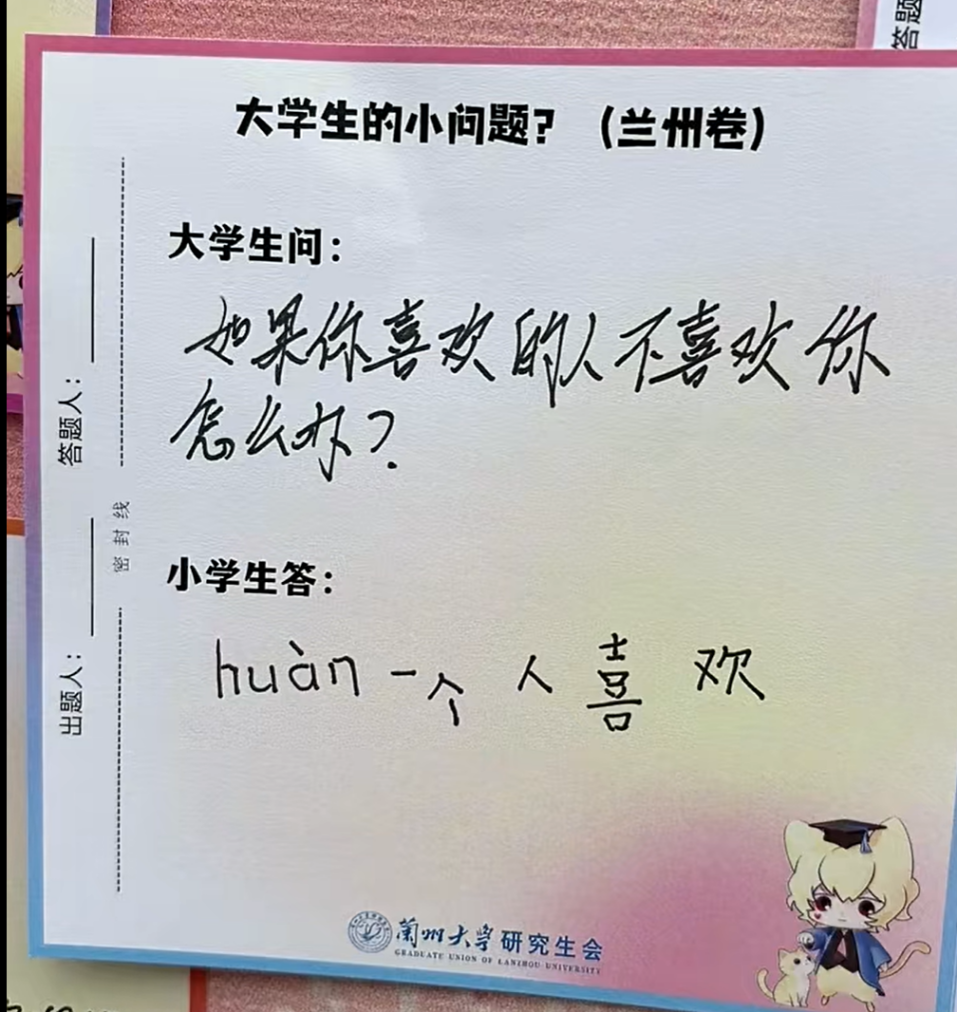 大学生的小问题？（兰州卷）
大学生问：
如果你喜欢的人不喜欢你
怎么办？
小学生答：
huàn一个人喜欢
答题人：
密封线
出题人：
兰州大学研究生会
GRADUATE UNION OF LANZHOU UNIVERSITY
答题